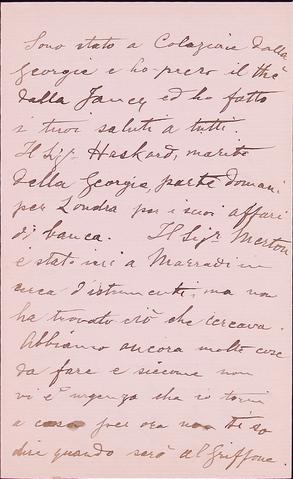 Sono stato a Colazione dalla
Georgia e ho preso il thè
dalla Fancy ed ho fatto
i tuoi saluti a tutti.
Il Sigr Haskard, marito
della Georgia, parte domani
per Londra per i suoi affari
di banca. Il Sigr Merton
è stato ieri a Marradi in
cerca d'istrumenti, ma non
ha trovato ciò che cercava.
Abbiamo ancora molte cose
da fare e siccome non
vi è urgenza che io torni
a casa per ora non ti so
dire quando sarò al Griffone.